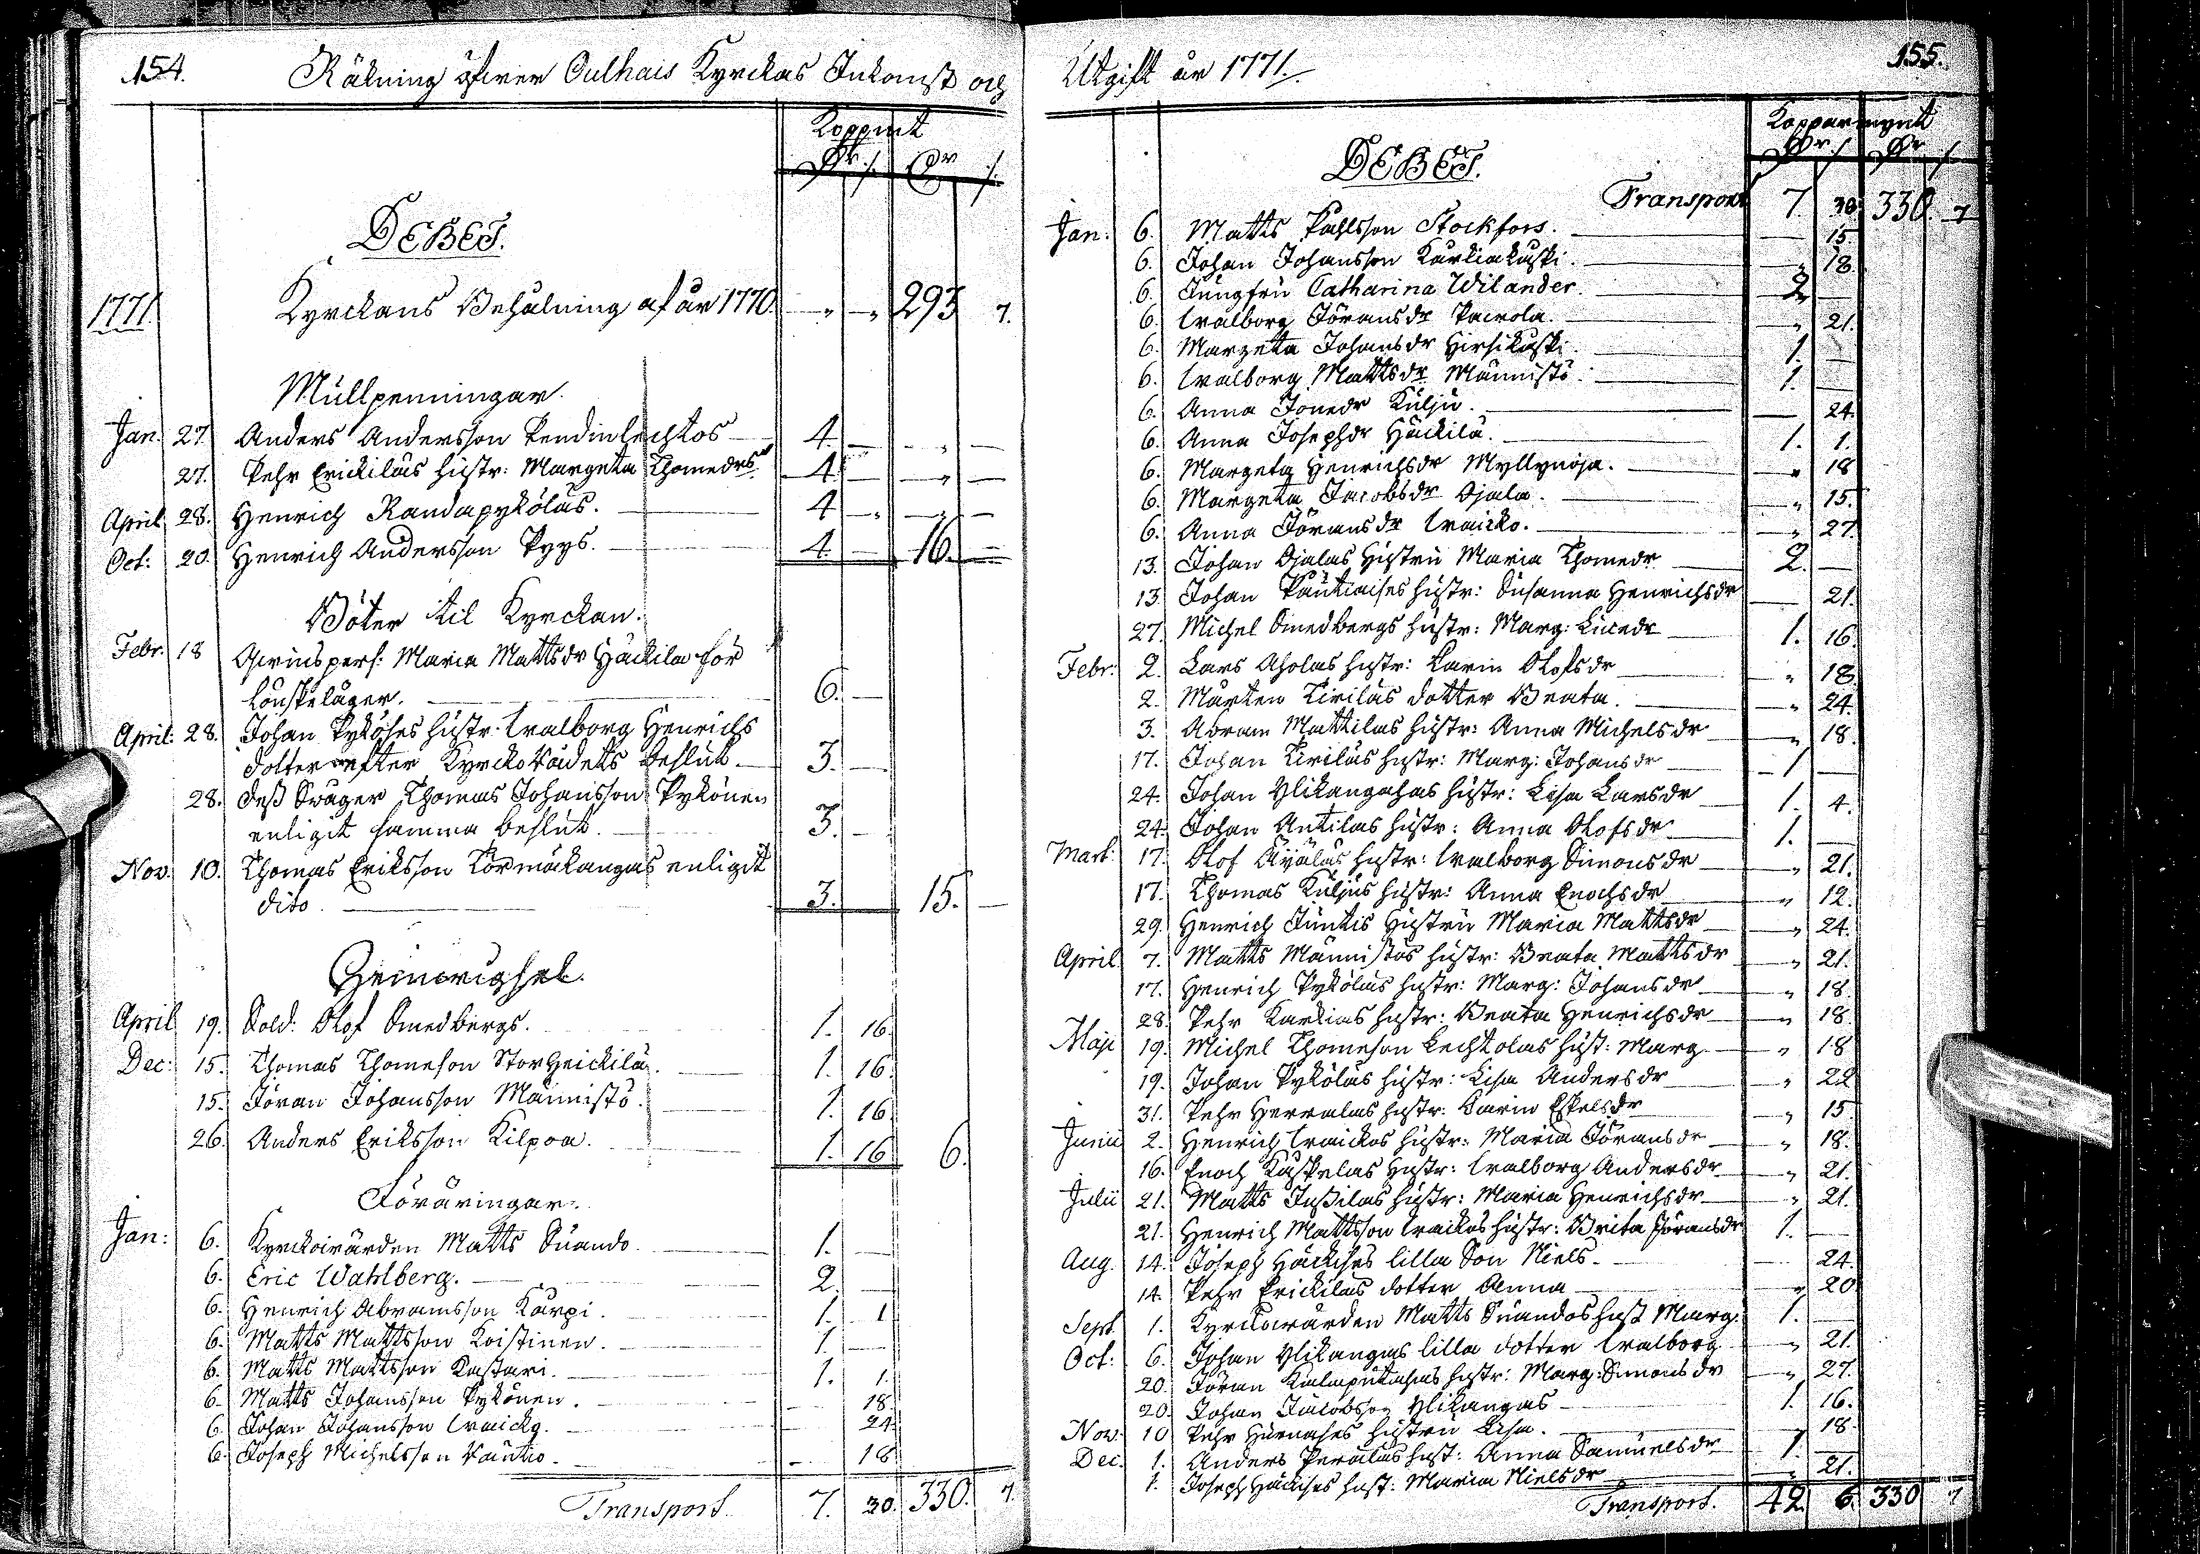 154.
Räkning öfwer Oulhais Kyrckas Inkomst och
Koppmt
Dr ./. Dr ./.
DEBET.
1771. Kyrckans Behålning af år 1770. " " 293 7.
Mullpenningar.
Jan. 27. Anders Andersson Pendinlechtos 4 — " —
27. Pehr Erickiläs hustr: Margeta Thomedrs 4 — " —
April 28. Henrich Randapykölas. 4 — " —
Oct: 20. Henrich Andersson Pyys. 4. — 16. —
Böter til Kyrckan.
Febr: 18 Qwinspers: Maria Mattsdr Häckila för
Lönskeläger. 6. —
April: 28. Johan Pyköses hustr. Walborg Henrichs
dotter efter Kyrckorådets beslut. 3. —
28. deß Swåger Thomas Johansson Pykönen
enligit samma beslut. 3. —
Nov. 10. Thomas Eriksson Tormäkangas enligit
dito. 3. 15. —
April 19. Sold: Olof Smedbergs. 1. 16.
Dec: 15. Thomas Thomeson Storheickilä. 1. 16.
15. Jöran Johansson Männistö. 1. 16
26. Anders Eriksson Kilpoa. 1. 16 6.
Föräringar.
Jan: 6. Kyrckowärden Matts Suando. 1. —
6. Eric Wahlberg. 2. —
6. Henrich Abramsson Karpi. 1. 1
6. Matts Mattsson Koistinen. 1. —
6. Matts Mattsson Kastari. 1. 1.
6. Matts Johansson Pykönen. — 18.
6. Johan Johansson Waicko. — 24.
6. Joseph Michelsson Väntio. — 18
Transport. 7. 30. 330. 7.
155.
Utgift år 1771.
Kopparmynt
Dr ./. Dr ./.
DEBET.
Transport 7. 30. 330. 7
Jan: 6. Matts Påhlsson Stockfors. 15.
6. Johan Johansson Karkiakuski. " 18.
6. Jungfru Catharina Wilander. 2 —
6. Walborg Jöransdr Pacrola. " 21.
6. Margeta Johansdr Hirsikuski. 1. —
6. Walborg Mattsdr Männistö. 1. —
6. Anna Jönedr Kulju. — 24.
6. Anna Josephdr Häckilä. 1. 1.
6. Margeta Henrichsdr Myllynoja. " 18
6. Margeta Jacobsdr Ojala. " 15.
6. Anna Jöransdr Waicko. " 27.
13. Johan Ojalas Hustru Maria Thomedr 2. —
13. Johan Väntiaises hustr: Susanna Henrichsdr — 21.
27. Michel Smedbergs hustr: Marg: Lucedr 1. 16.
Febr: 2. Lars Aholas hustr: Karin Olofsdr " 18
2. Mårten Kiviläs dotter Beata. " 24.
3. Abram Mattilas hustr: Anna Michelsdr " 18.
17. Johan Kiviläs hustr: Marg: Johansdr 1 —
24. Johan Ylikangahas hustr: Lisa Larsdr 1. 4.
24. Johan Antilas hustr: Anna Olofsdr 1. —
Mart: 17. Olof Äyäläs hustr: Walborg Simonsdr " 21.
17. Thomas Kuljus hustr: Anna Enochsdr " 12.
29. Henrich Juntis Hustru Maria Mattsdr " 24.
April. 7. Matts Männistös hustr: Beata Mattsdr " 21.
17. Henrich Pykölas hustr: Marg: Johansdr " 18.
28. Pehr Karkias hustr: Beata Henrichsdr " 18.
Maji 19. Michel Thomeson Lechtolas hust: Marg. " 18
19. Johan Pykölas hustr: Lisa Andersdr " 22
31. Pehr Herralas hustr: Karin Eskelsdr " 15
Junii 2. Henrich Waickos hustr: Maria Jöransdr " 18.
16. Enoch Kuskelas hustr: Walborg Andersdr " 21.
Julii 21. Matts Jußilas hustr: Maria Henrichsdr " 21.
21. Henrich Mattsson Waickos hustr: Brita Jöransdr 1. —
Aug. 14. Joseph Häckises lilla Son Niels. 24.
14. Pehr Erickilas dotter Anna " 20
Sept. 1. Kyrckowärden Matts Suandos hust Marg: 1. —
Oct: 6. Johan Ylikangas lilla dotter Walborg " 21.
20. Jöran hustr: Marg: Simonsdr " 27.
20. Johan Jacobsson Ylikangas 1. 16.
Nov: 10 Pehr Hurnases hustru Lisa. 18.
Dec. 1. Anders Peralas hust: Anna Samuelsdr 1. —
1. Joseph Häckises hust: Maria Nielsdr " 21.
Transport. 42. 6. 330 7